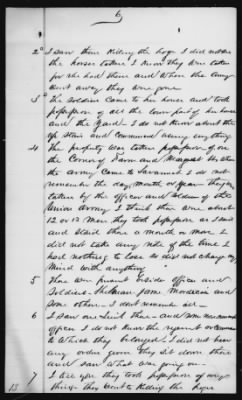 6
2 I saw them Killing the hogs I did not see
the horses taken I Know they were taken
for she had them and when the army
went away they were gone
3 The Soldiers Came to her house and took
possession of all the down part of her house
and the Yard. I do not Know about the
up Stair and Commenced using everything
4 The property was taken possession of on
the Corner of Farm and Margaret Sts when
the army Came to Savannah I do not
remember the day, month or year they was
taken by the Officers and Soldiers of the
Union Army I think there were about
12 or 13 Men. they took possession as I said
and Staid there a month or more I
did not take any note of the time I
had nothing to lose so did not charge my
Mind with anything
5 There were present beside officers and
Soldiers. Hickman, Jane, and
Some others I dont remember
6 I saw one Tent there and
officers I do not Know the regiment or Command
to which they belonged. I did not hear
any orders given they sit down there
and saw what was going on
7 I tell you they took possession of every
thing they went to Killing the hogs
13